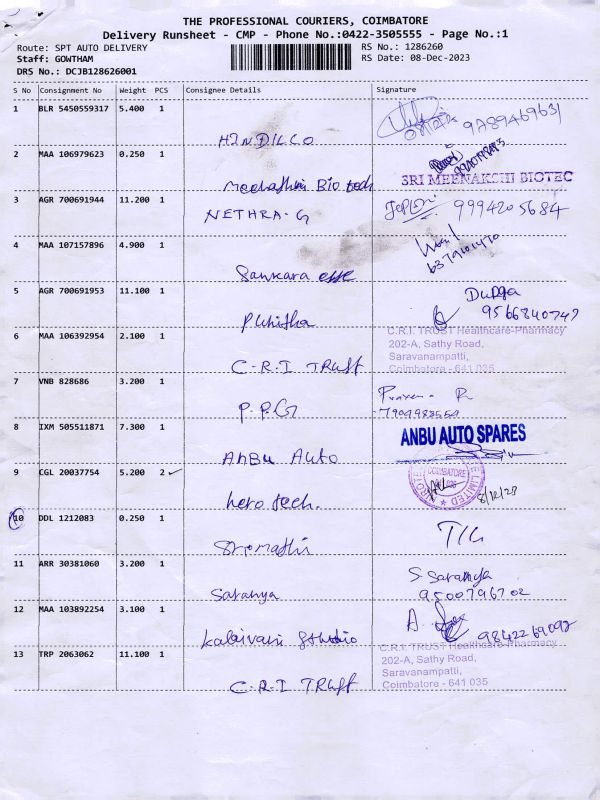 THE PROFESSIONAL COURIERS, COIMBATORE
Delivery Runsheet - CMP - Phone No.:0422-3505555 - Page No.:1
Route: SPT AUTO DELIVERY RS No.: 1286260
Staff: GOWTHAM RS Date: 08-Dec-2023
DRS No.: DCJB128626001
S No Consignment No Weight PCS Consignee Details Signature
1 BLR 5450559317 5.400 1
HINDILCO 9789469631
2 MAA 106979623 0.250 1
Bio tech SRI MEENAKSHI BIOTEC
3 AGR 700691944 11.200 1
NETHRA-G 9994205684
4 MAA 107157896 4.900 1
Sankara
5 AGR 700691953 11.100 1 Durga
Punitha 9566840747
6 MAA 106392954 2.100 1 C.R.I. TRUST Healthcare-Pharmacy
202-A, Sathy Road,
Saravanampatti,
C.R.I TRUST Coimbatore - 641 035
7 VNB 828686 3.200 1
P.P.G
8 IXM 505511871 7.300 1 ANBU AUTO SPARES
ANBU AUTO
9 CGL 20037754 5.200 2 COIMBATORE
hero tech. 8/12/23
10 DDL 1212083 0.250 1
Srimathi
11 ARR 30381060 3.200 1 S. Saranya
Saranya 9500796702
12 MAA 103892254 3.100 1
Kalaivani Studio 9842269092
13 TRP 2063062 11.100 1 C.R.I. TRUST Healthcare-Pharmacy
202-A, Sathy Road,
Saravanampatti,
C.R.I TRUST Coimbatore - 641 035